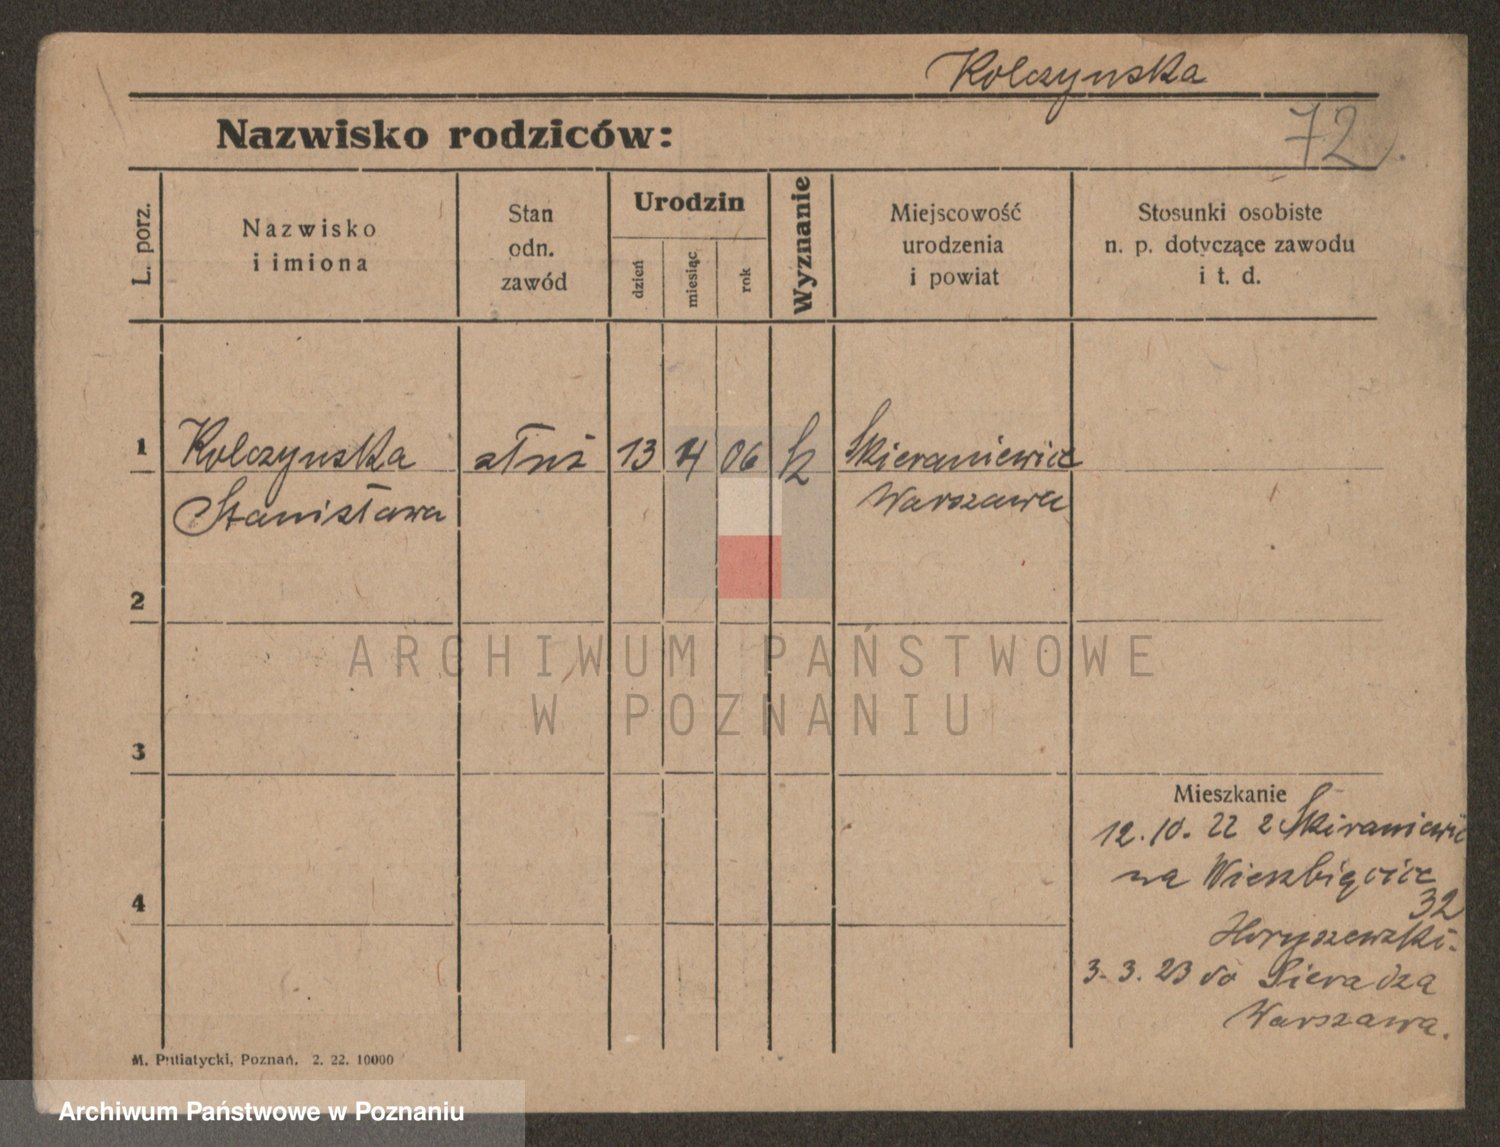 Kolczynska
72.
Nazwisko rodziców:
L. porz.
Nazwisko
i imiona
Stan
odn.
zawód
Urodzin
dzień
miesiąc
rok
Wyznanie
Miejscowość
urodzenia
i powiat
Stosunki osobiste
n. p. dotyczące zawodu
i t. d.
1
Kolczynska
Stanisława
służ
13
4
06
Skieraniewice
Warszawa
2
3
4
Mieszkanie
12.10. 22 z Skiraniewic
na Wierzbięcice
32
Horyszewski.
3. 3. 23 do Sieradza
Warszawa.
M. Putiatycki, Poznań. 2. 22. 10000
ARCHIWUM PAŃSTWOWE
W POZNANIU
Archiwum Państwowe w Poznaniu